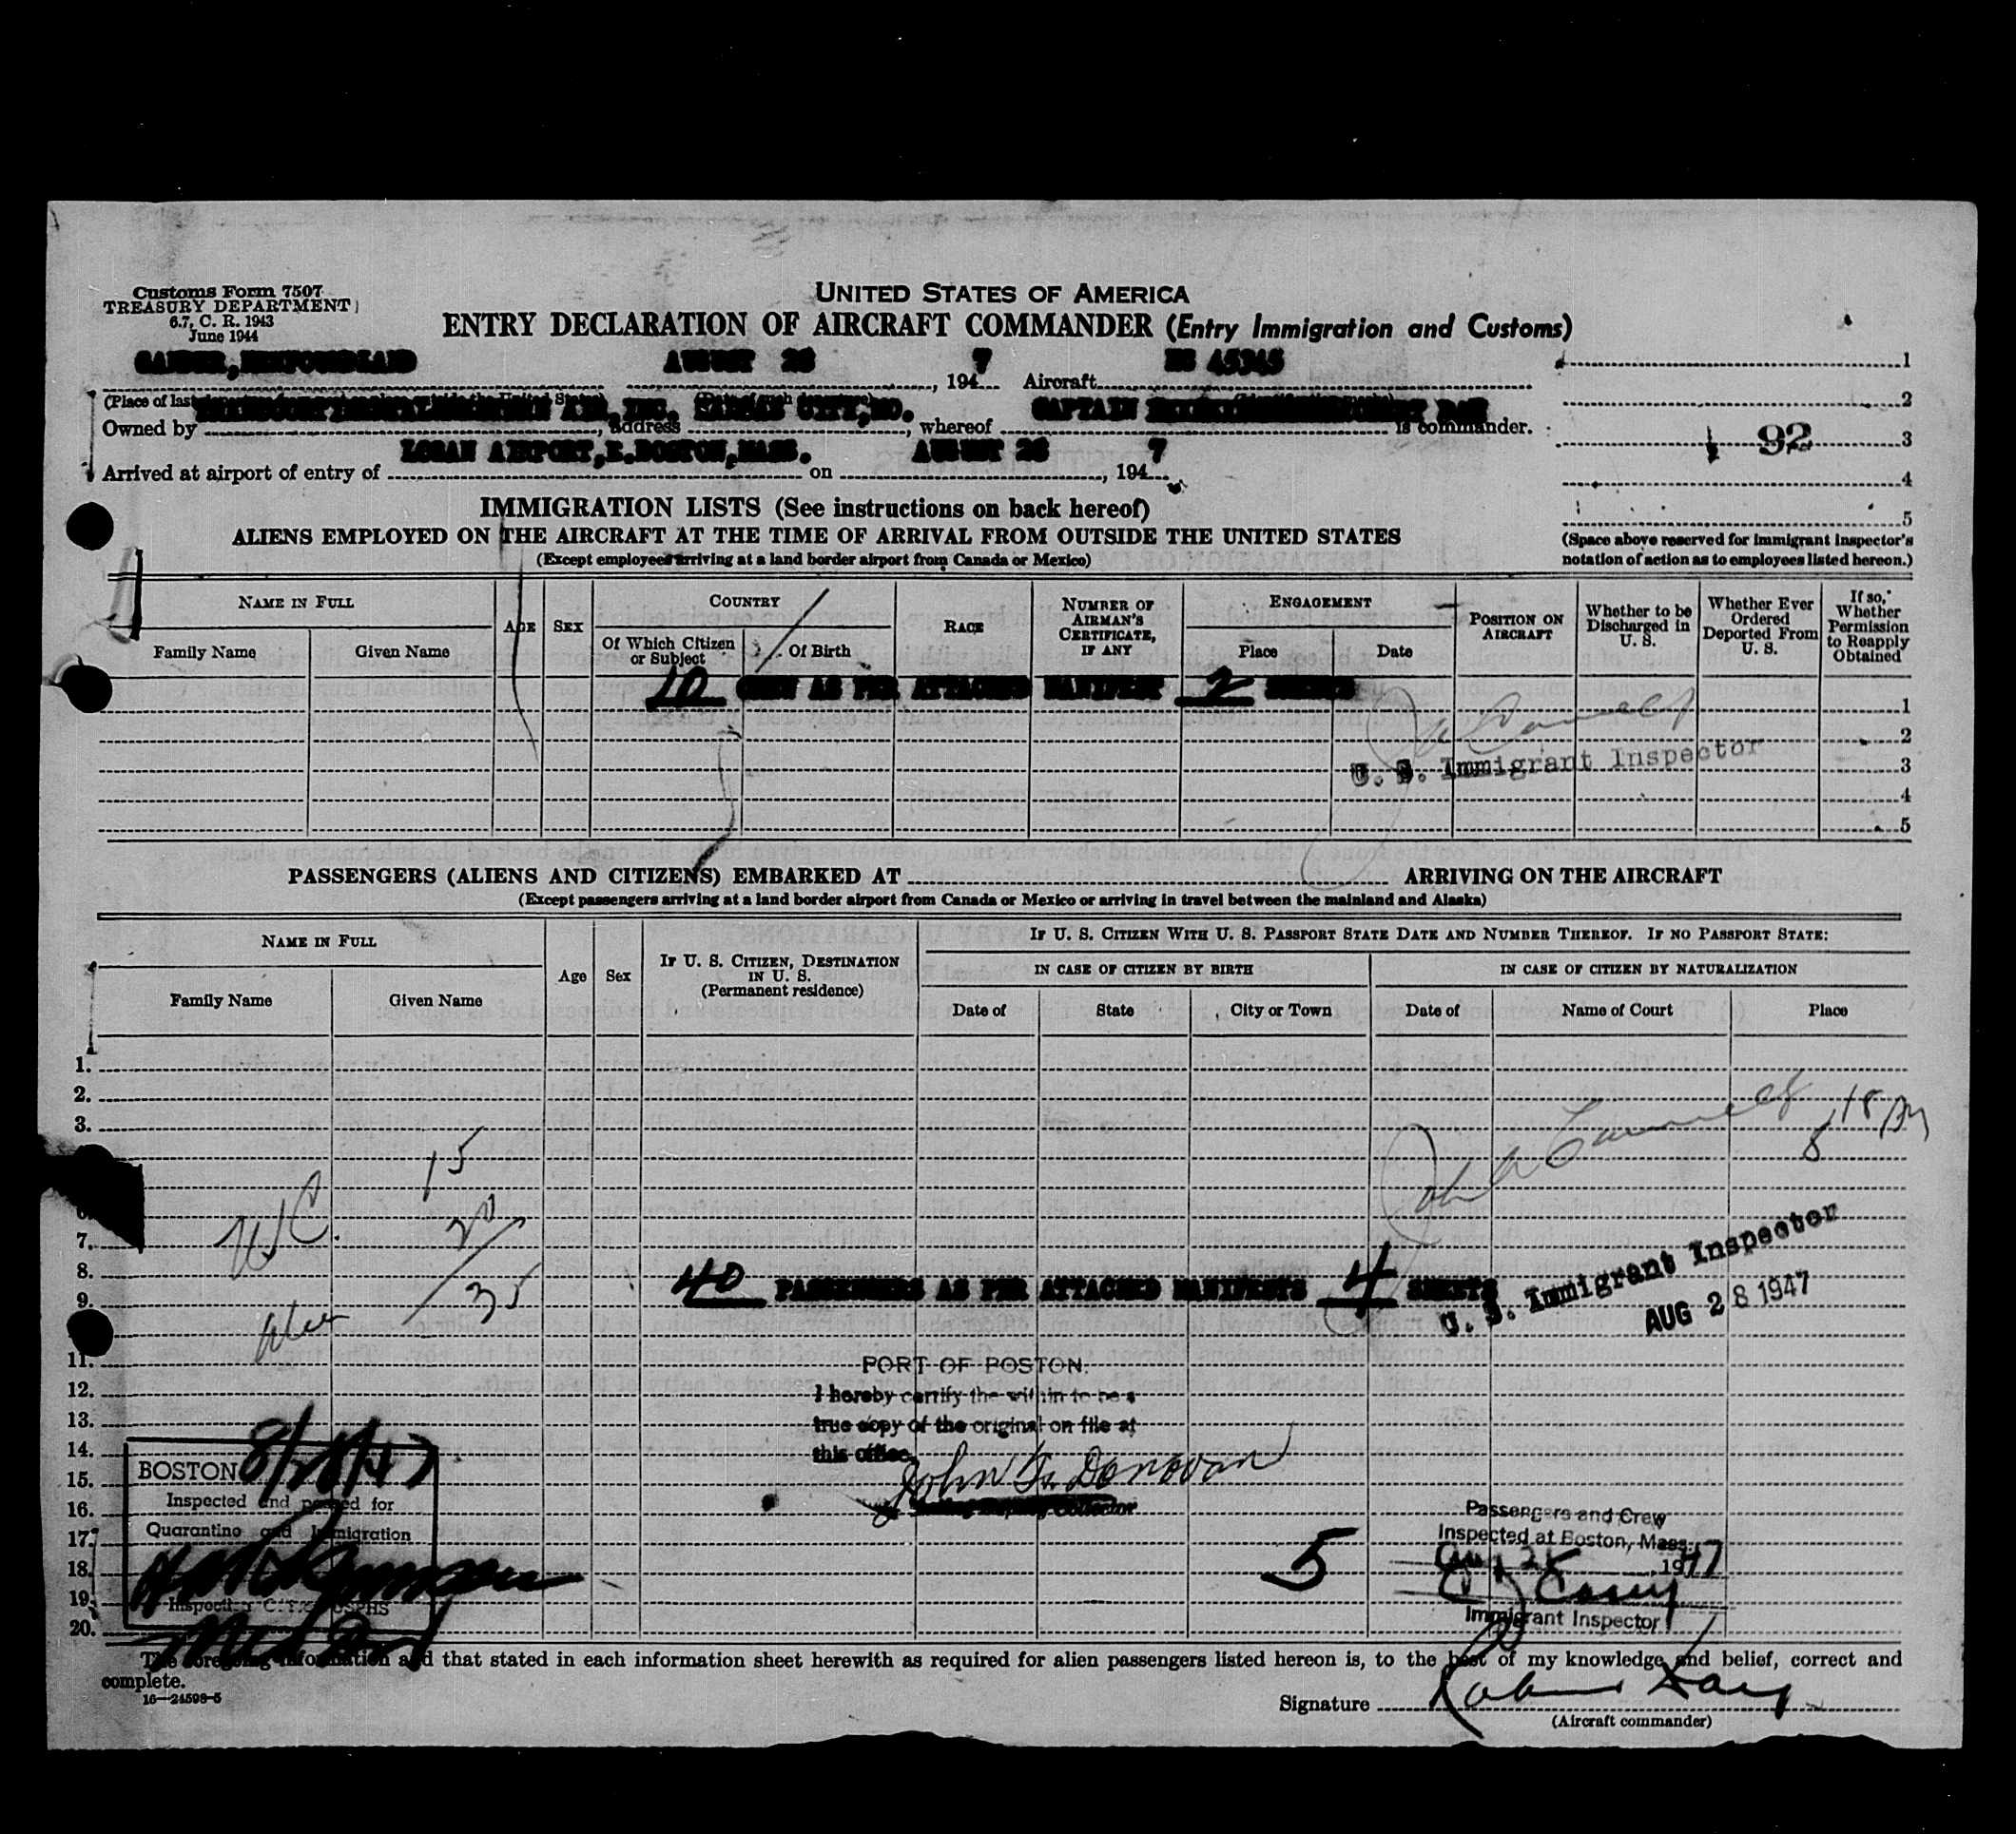 Customs Form 7507
TREASURY DEPARTMENT
6.7, C. R. 1943
June 1944
UNITED STATES OF AMERICA
ENTRY DECLARATION OF AIRCRAFT COMMANDER (Entry Immigration and Customs)
GANDER, NEWFOUNDLAND AUGUST 28 , 1947 Aircraft 45345
(Place of last
Owned by AIR, INC. , address KANSAS CITY, MO. , whereof CAPTAIN DAY is commander.
Arrived at airport of entry of LOGAN AIRPORT, E. BOSTON, MASS. on AUGUST 28 , 1947
1
2
92 3
4
5
(Space above reserved for Immigrant Inspector's
notation of action as to employees listed hereon.)
IMMIGRATION LISTS (See instructions on back hereof)
ALIENS EMPLOYED ON THE AIRCRAFT AT THE TIME OF ARRIVAL FROM OUTSIDE THE UNITED STATES
(Except employees arriving at a land border airport from Canada or Mexico)
NAME IN FULL
Family Name Given Name
AGE
SEX
COUNTRY
Of Which Citizen or Subject
Of Birth
RACE
NUMBER OF AIRMAN'S CERTIFICATE, IF ANY
ENGAGEMENT
Place Date
POSITION ON AIRCRAFT
Whether to be Discharged in U. S.
Whether Ever Ordered Deported From U. S.
If so, Whether Permission to Reapply Obtained
10 CREW AS PER ATTACHED MANIFEST 2 SHEETS
1
2
U. S. Immigrant Inspector
3
4
5
PASSENGERS (ALIENS AND CITIZENS) EMBARKED AT ARRIVING ON THE AIRCRAFT
(Except passengers arriving at a land border airport from Canada or Mexico or arriving in travel between the mainland and Alaska)
NAME IN FULL
Family Name Given Name
Age
Sex
IF U. S. CITIZEN, DESTINATION IN U. S.
(Permanent residence)
IF U. S. CITIZEN WITH U. S. PASSPORT STATE DATE AND NUMBER THEREOF. IF NO PASSPORT STATE:
IN CASE OF CITIZEN BY BIRTH
Date of State City or Town
IN CASE OF CITIZEN BY NATURALIZATION
Date of Name of Court Place
1.
2.
3.
15
7.
8.
9.
35
40 PASSENGERS AS PER ATTACHED MANIFESTS 4 SHEETS
U. S. Immigrant Inspector
AUG 28 1947
11.
12.
13.
14.
15.
16.
17.
18.
19.
20.
PORT OF BOSTON.
I hereby certify the within to be a
true copy of the original on file at
this office.
John F. Donovan
BOSTON 8/28/47
Inspected and passed for
Quarantine and Immigration
USPHS
5
Passengers and Crew
Inspected at Boston, Mass.
Aug 28 , 1947
Casey
Immigrant Inspector
The foregoing information and that stated in each information sheet herewith as required for alien passengers listed hereon is, to the best of my knowledge and belief, correct and
complete.
16—24598-5
Signature
(Aircraft commander)